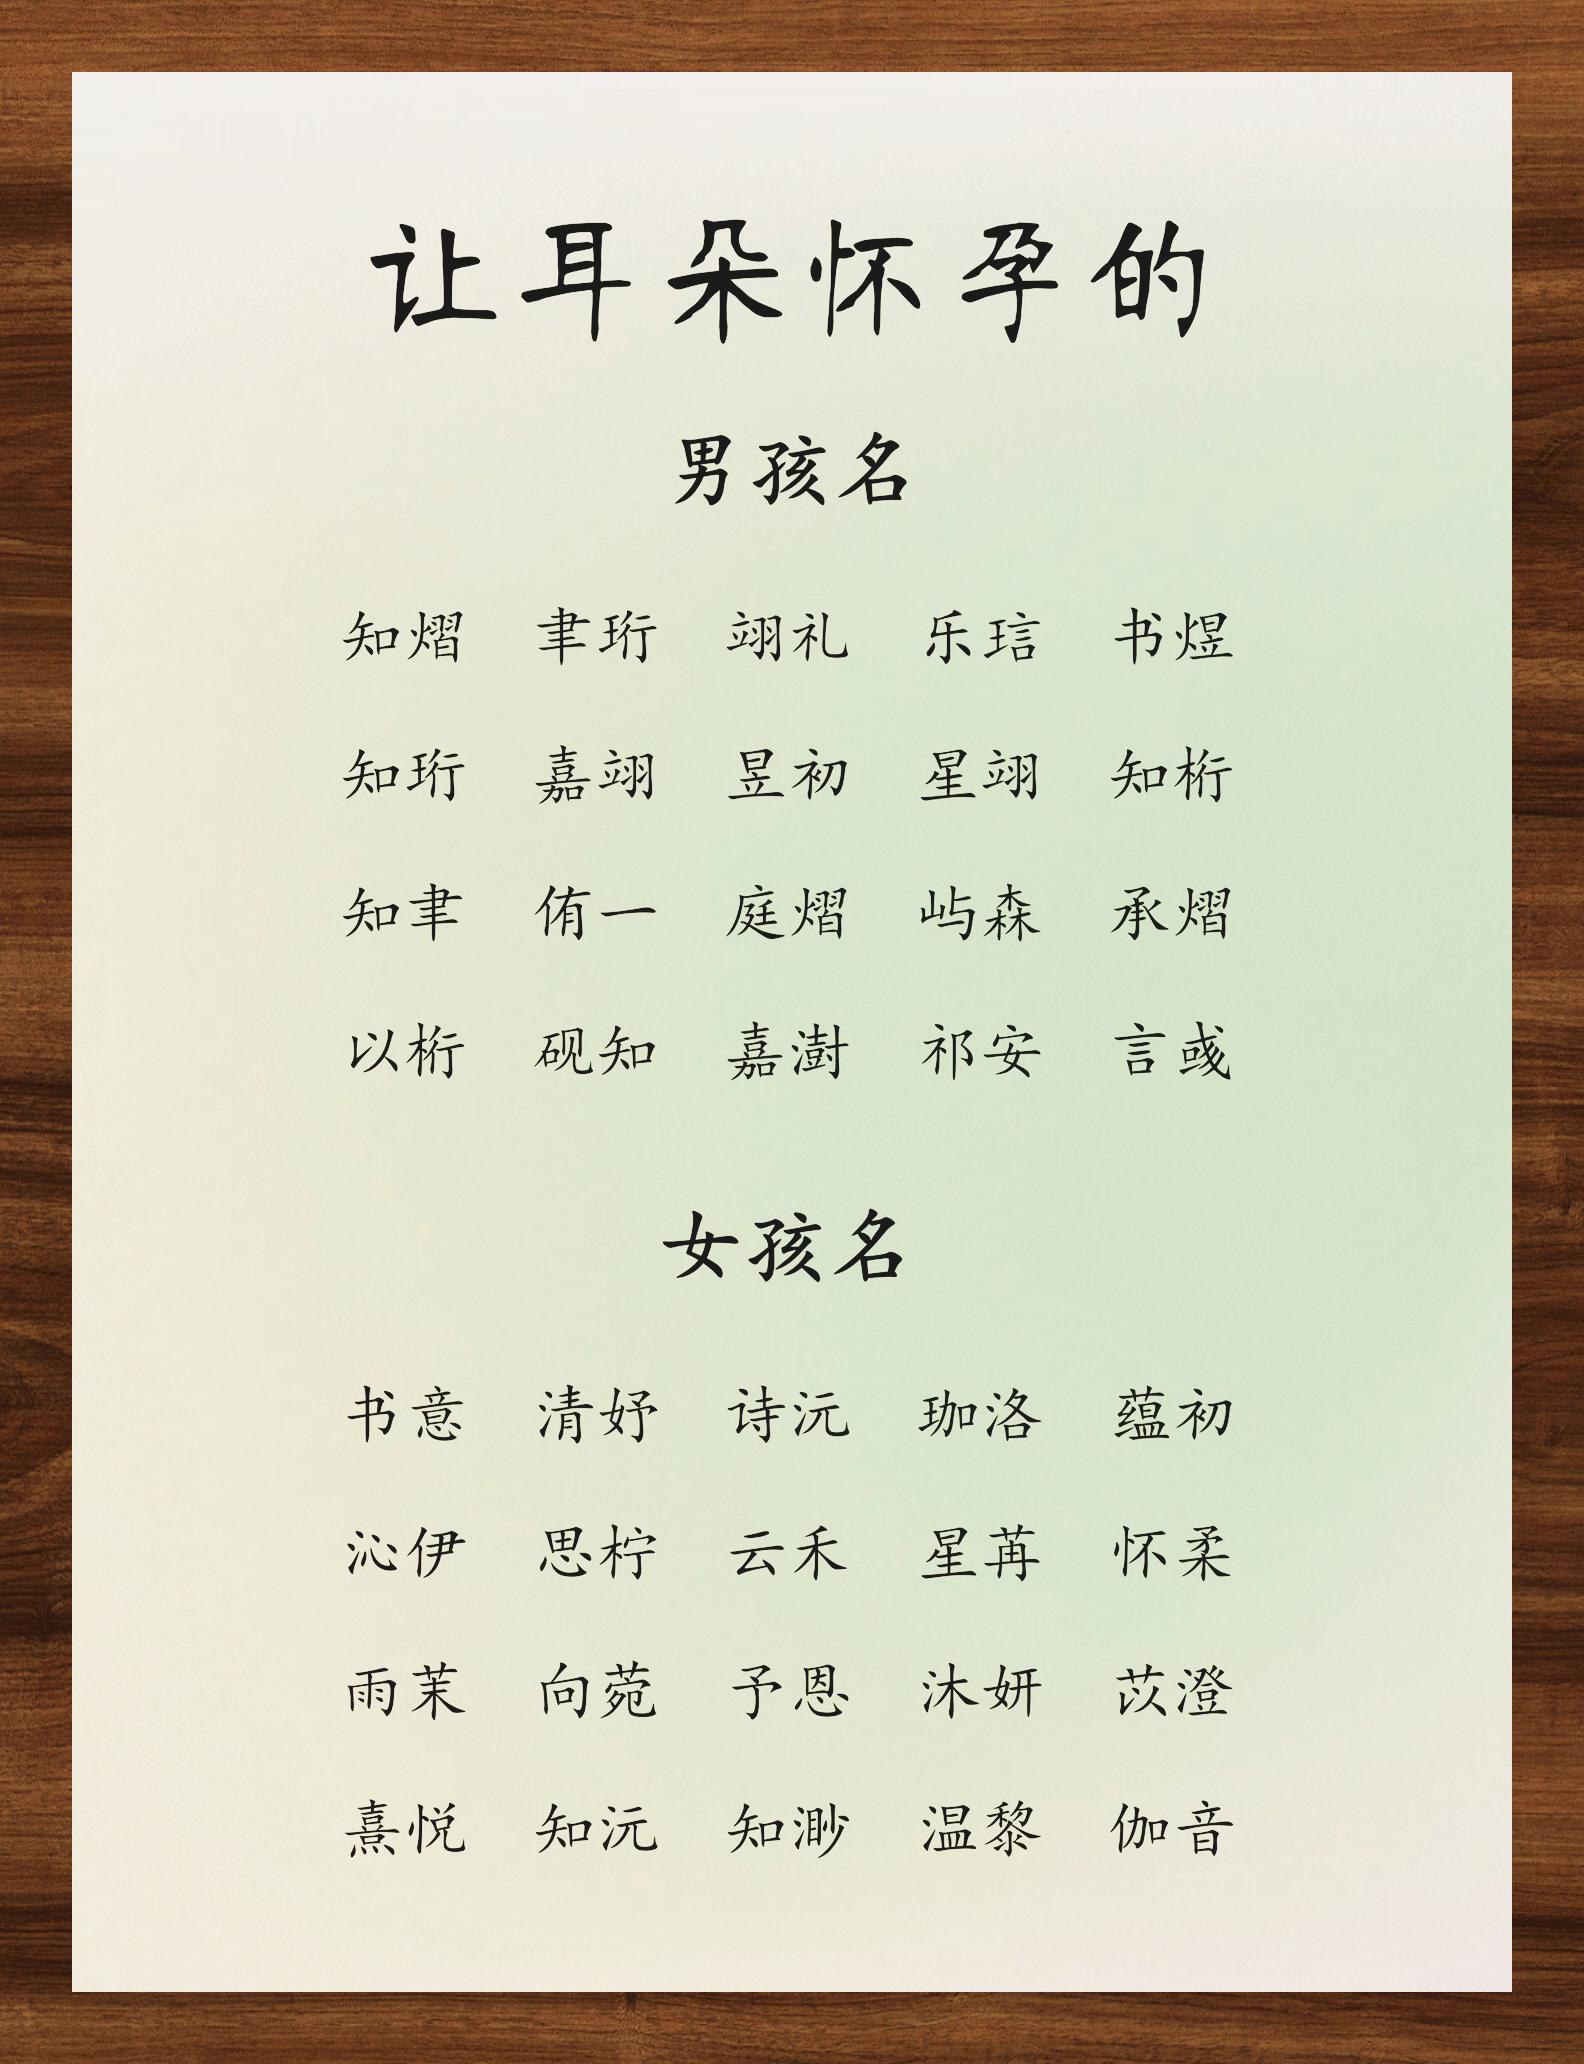 让耳朵怀孕的
男孩名
知熠 聿珩 翊礼 乐琂 书煜
知珩 嘉翊 昱初 星翊 知桁
知聿 侑一 庭熠 屿森 承熠
以桁 砚知 嘉澍 祁安 言彧
女孩名
书意 清妤 诗沅 珈洛 蕴初
沁伊 思柠 云禾 星苒 怀柔
雨茉 向菀 予恩 沐妍 苡澄
熹悦 知沅 知渺 温黎 伽音